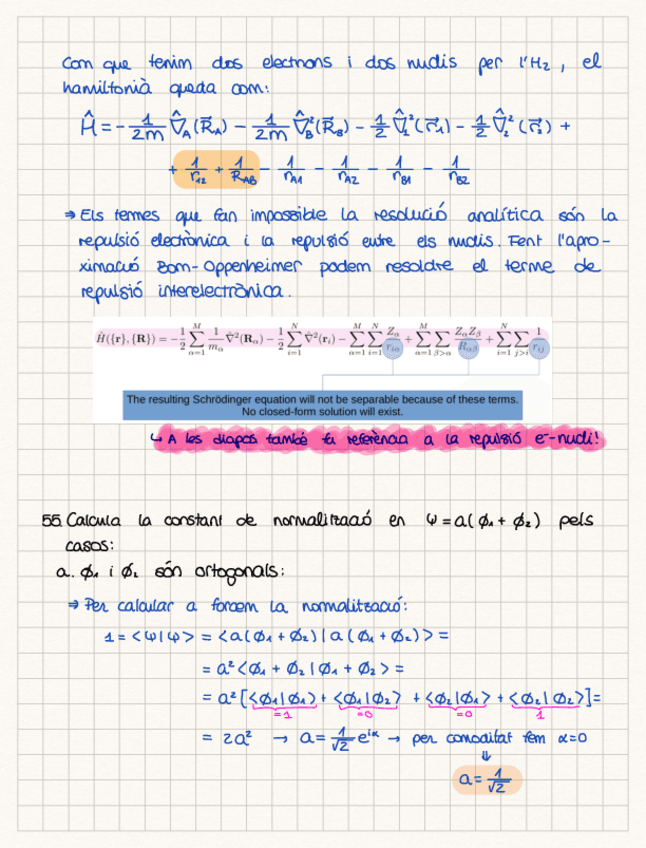 Com que tenim dos electrons i dos nuclis per l'H₂, el
hamiltonià queda com:
Ĥ = -1/2m ∇̂_A(R⃗_A) - 1/2m ∇̂²_B(R⃗_B) - 1/2 ∇̂₁²(r⃗₁) - 1/2 ∇̂₂²(r⃗₂) +
+ 1/r₁₂ + 1/R_AB - 1/r_A1 - 1/r_A2 - 1/r_B1 - 1/r_B2
⇒ Els termes que fan impossible la resolució analítica són la
repulsió electrònica i la repulsió entre els nuclis. Fent l'apro-
ximació Born-Oppenheimer podem resoldre el terme de
repulsió interelectrònica.
Ĥ({r}, {R}) = -1/2 ∑_{α=1}^{M} 1/m_α ∇̂²(R_α) - 1/2 ∑_{i=1}^{N} ∇̂²(r_i) - ∑_{α=1}^{M} ∑_{i=1}^{N} Z_α/r_{iα} + ∑_{α=1}^{M} ∑_{β>α} Z_αZ_β/R_{αβ} + ∑_{i=1}^{N} ∑_{j>i} 1/r_{ij}
The resulting Schrödinger equation will not be separable because of these terms.
No closed-form solution will exist.
↳ A les diapos també fa referència a la repulsió e⁻-nucli!
55. Calcula la constant de normalització en Ψ = a(φ₁ + φ₂) pels
casos:
a. φ₁ i φ₂ són ortogonals:
⇒ Per calcular a forcem la normalització:
1 = <Ψ|Ψ> = <a(φ₁ + φ₂)|a(φ₁ + φ₂)> =
= a²<φ₁ + φ₂|φ₁ + φ₂> =
= a²[<φ₁|φ₁> + <φ₁|φ₂> + <φ₂|φ₁> + <φ₂|φ₂>] =
=1 =0 =0 1
= 2a² → a = 1/√2 e^{iα} → per comoditat fem α=0
⇓
a = 1/√2